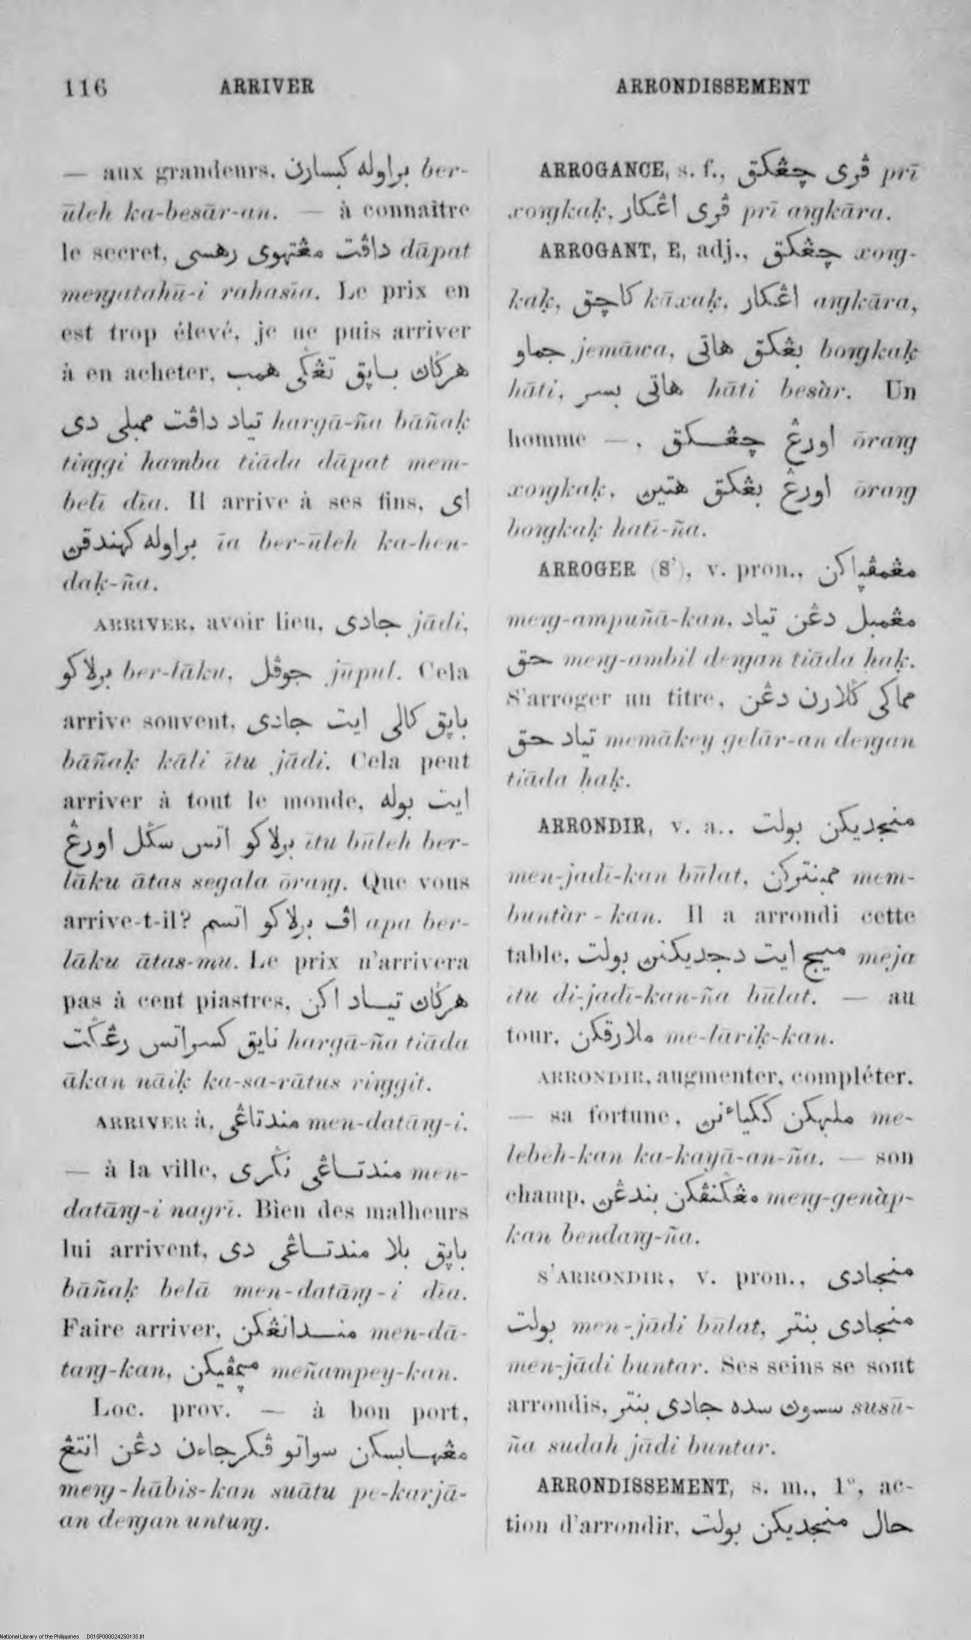 116 ARRIVER ARRONDISSEMENT
— aux grandeurs, براوله كبسارن ber-
ūleh ka-besār-an. — à connaître
le secret, داڤت مڠتهوي رهسي dāpat
meng̃atahū-i rahasīa. Le prix en
est trop élevé, je ne puis arriver
à en acheter, هرݢاڽ باڽق تڠݢي همب
تياد داڤت ممبلي دي hargā-ña bāñaḳ
ting̃gi hamba tiāda dāpat mem-
belī dīa. Il arrive à ses fins, اي
براوله كهندقڽ īa ber-ūleh ka-hen-
daḳ-ña.
ARRIVER, avoir lieu, جادي jādi,
برلاكو ber-lāku, جوڤل jūpul. Cela
arrive souvent, باڽق كالي ايت جادي
bāñaḳ kāli ītu jādi. Cela peut
arriver à tout le monde, ايت بوله
برلاكو اتس سݢل اورڠ ītu būleh ber-
lāku ātas segala ōrang̃. Que vous
arrive-t-il? اڤ برلاكو اتسم apa ber-
lāku ātas-mu. Le prix n'arrivera
pas à cent piastres, هرݢاڽ تياد اكن
نايق كسراتس رڠݢت hargā-ña tiāda
ākan nāiḳ ka-sa-rātus ring̃git.
ARRIVER à, مندتاڠي men-datāng̃-i.
— à la ville, مندتاڠي نݢري men-
datāng̃-i nagrī. Bien des malheurs
lui arrivent, باڽق بلا مندتاڠي دي
bāñaḳ belā men-datāng̃-i dīa.
Faire arriver, منداتڠكن men-dā-
tang̃-kan, مڽمڤيكن meñampey-kan.
Loc. prov. — à bon port,
مڠهابسكن سواتو ڤكرجاءن دڠن انتڠ
meng̃-hābis-kan suātu pe-karjā-
an deng̃an untung̃.
ARROGANCE, s. f., ڤري چڠكق prī
xong̃kaḳ, ڤري اڠكار prī ang̃kāra.
ARROGANT, E, adj., چڠكق xong̃-
kaḳ, كاچق kāxaḳ, اڠكار ang̃kāra,
جماو jemāwa, بڠكق هاتي bong̃kaḳ
hāti, هاتي بسر hāti besàr. Un
homme —, اورڠ چڠكق ōrang̃
xong̃kaḳ, اورڠ بڠكق هتيڽ ōrang̃
bong̃kaḳ hatī-ña.
ARROGER (S'), v. pron., مڠمڤوڽاكن
meng̃-ampuñā-kan, مڠمبل دڠن تياد
حق meng̃-ambil deng̃an tiāda ḥaḳ.
S'arroger un titre, مماكي ݢلارن دڠن
تياد حق memākey gelār-an deng̃an
tiāda ḥaḳ.
ARRONDIR, v. a., منجديكن بولت
men-jadī-kan būlat, ممبنتركن mem-
buntàr-kan. Il a arrondi cette
table, ميج ايت دجديكنڽ بولت meja
ītu di-jadī-kan-ña būlat. — au
tour, ملارقكن me-lāriḳ-kan.
ARRONDIR, augmenter, compléter.
— sa fortune, ملبهكن ككياءنڽ me-
lebeh-kan ka-kayā-an-ña. — son
champ, مڠݢنڤكن بندڠڽ meng̃-genàp-
kan bendang̃-ña.
S'ARRONDIR, v. pron., منجادي
بولت men-jādi būlat, منجادي بنتر
men-jādi buntar. Ses seins se sont
arrondis, سسوڽ سده جادي بنتر susū-
ña sudah jādi buntar.
ARRONDISSEMENT, s. m., 1°, ac-
tion d'arrondir, حال منجديكن بولت
National Library of the Philippines